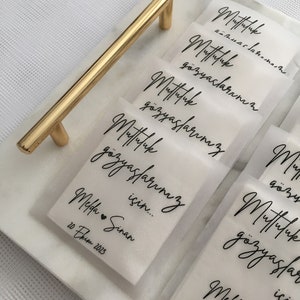 Mutluluk
gözyaşlarınız
Mutluluk
gözyaşlarınız
Mutluluk
gözyaşlarınız
Mutluluk
gözyaşlarınız
için...
Melda ♥ Sinan
20 Ekim 2023
Mutluluk
gözyaşlarınız
Mutluluk
gözyaşlarınız
için...